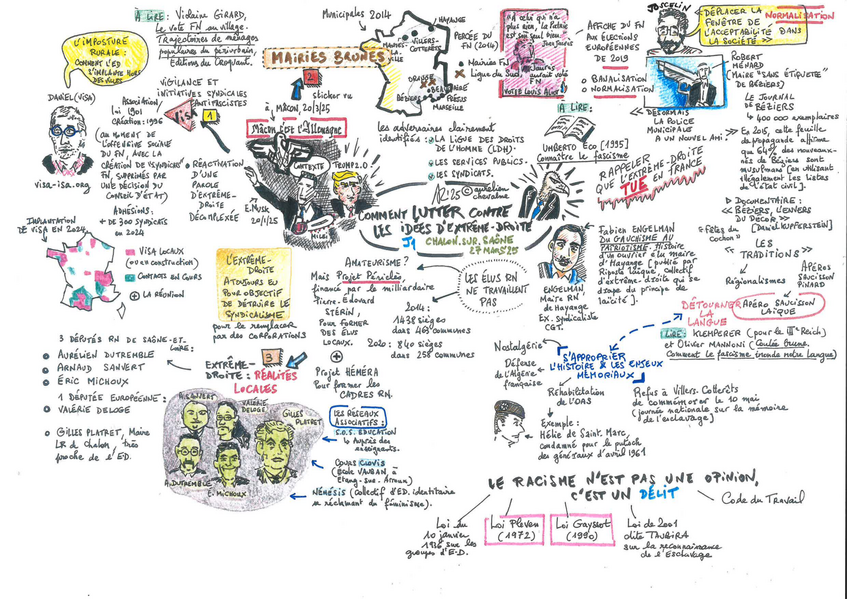 À LIRE : Violaine GIRARD,
Le vote FN au village.
Trajectoires de ménages
populaires du périurbain,
Editions du Croquant.
L'IMPOSTURE
RURALE :
COMMENT L'ED
S'IMPLANTE HORS
DES VILLES
DANIEL (VISA)
visa-isa.org
VIGILANCE ET
INITIATIVES SYNDICALES
ANTIFASCISTES
Association
loi 1901
création : 1996
VISA
1
AU MOMENT DE
L'OFFENSIVE SOCIALE
DU FN, AVEC LA
CRÉATION DE "SYNDICATS"
FN, SUPPRIMÉS PAR
UNE DÉCISION DU
CONSEIL D'ÉTAT)
ADHÉSIONS :
+ de 300 syndicats
en 2024
RÉACTION
D'UNE
PAROLE
D'EXTRÊME-
DROITE
DÉCOMPLEXÉE
IMPLANTATION
DE VISA EN 2024
VISA LOCAUX
(ou en construction)
CONTACTS EN COURS
LA RÉUNION
MAIRIES BRUNES
2
sticker vu
à MÂCON, 20/3/25
Mâcon Est d'Allemagne
CONTEXTE
TRUMP 2.0
E. Musk
20/1/25
Milei
Municipales 2014
HAYANGE
VILLERS-
COTTERÊTS
MANTES-
LA-
VILLE
ORANGE
BÉZIERS
BEAUCAIRE
FRÉJUS
MARSEILLE
PERCÉE DU
FN (2014)
Mairies FN
Ligue du Sud
les adversaires clairement
identifiés :
LA LIGUE DES DROITS
DE L'HOMME (LDH).
LES SERVICES PUBLICS.
LES SYNDICATS.
À celui qui n'a
plus rien, la Patrie
est son seul bien
Jean Jaurès
Jaurès
aurait voté
FN
VOTEZ LOUIS ALIOT !
AFFICHE DU FN
AUX ÉLECTIONS
EUROPÉENNES
DE 2009
BANALISATION
NORMALISATION
JOSCELIN
« DÉPLACER LA
FENÊTRE DE
L'ACCEPTABILITÉ DANS
LA SOCIÉTÉ »
NORMALISATION
ROBERT
MÉNARD
(MAIRE "SANS ÉTIQUETTE"
DE BÉZIERS)
« DÉSORMAIS
LA POLICE
MUNICIPALE
A UN NOUVEL AMI »
LE JOURNAL
DE BÉZIERS
400 000 exemplaires
En 2015, cette feuille
de propagande affirme
que 64% des nouveaux-
nés de Béziers sont
musulmans [en utilisant
illégalement les listes
de l'état civil].
DOCUMENTAIRE :
« BÉZIERS, L'ENVERS
DU DÉCOR »
[DANIEL KUPFERSTEIN]
« Fêtes du
cochon »
LES
« TRADITIONS »
Régionalismes
APÉROS
SAUCISSON
PINARD
APÉRO SAUCISSON
LAÏQUE
À LIRE :
UMBERTO Eco [1995]
Reconnaître le fascisme
RAPPELER
QUE L'EXTRÊME-DROITE
TUE EN FRANCE
AR'25 © aurélien
chevalme
COMMENT LUTTER CONTRE
LES IDÉES D'EXTRÊME-DROITE
J1 CHALON.SUR.SAÔNE
27 MARS'25
ENGELMAN
Maire RN
de Hayange
EX. syndicaliste
CGT.
Fabien ENGELMAN
DU GAUCHISME AU
PATRIOTISME. Histoire
d'un ouvrier élu maire
d'Hayange [publié par
Riposte laïque, collectif
d'extrême-droite qui se
drape du principe de
laïcité].
DÉTOURNER
LA
LANGUE
LIRE : KLEMPERER (pour le IIIe Reich)
et Olivier MANNONI (Coulée brune.
Comment le fascisme inonde notre langue)
S'APPROPRIER
L'HISTOIRE & LES ENJEUX
MÉMORIAUX
Nostalgérie
Défense
de l'Algérie
française
Réhabilitation
de l'OAS
Exemple :
Hélie de Saint. Marc,
condamné pour le putsch
des généraux d'avril 1961
Refus à Villers. Cotterêts
de commémorer le 10 mai
(journée nationale sur la mémoire
de l'esclavage)
L'EXTRÊME-
DROITE
A TOUJOURS EU
POUR OBJECTIF
DE DÉTRUIRE LE
SYNDICALISME
pour le remplacer
par des CORPORATIONS
AMATEURISME ?
Mais Projet Périclès,
financé par le milliardaire
Pierre. Edouard
STÉRIN,
POUR FORMER
DES ÉLUS
LOCAUX.
Projet
HÉMÉRA
Pour former les
CADRES RN.
LES ÉLUS RN
NE TRAVAILLENT
PAS
2014 :
1438 sièges
dans 463 communes
2020 : 840 sièges
dans 258 communes
3 DÉPUTÉS RN DE SAÔNE-ET-
LOIRE :
AURÉLIEN DUTREMBLE
ARNAUD SANVERT
ÉRIC MICHOUX
1 DÉPUTÉE EUROPÉENNE :
VALÉRIE DELOGE
GILLES PLATRET, Maire
LR de Chalon, très
proche de l'ED.
3
EXTRÊME-
DROITE :
RÉALITÉS
LOCALES
A. SANVERT
VALÉRIE
DELOGE
GILLES
PLATRET
A. DUTREMBLE
E. MICHOUX
LES RÉSEAUX
ASSOCIATIFS :
S.O.S. EDUCATION
Auprès des
enseignants.
COURS CLOVIS
(École VAUBAN, à
Etang-sur-Arroux)
NÉMÉSIS (Collectif d'ED. identitaire
se réclamant du féminisme).
LE RACISME N'EST PAS UNE OPINION,
C'EST UN DÉLIT
Code du Travail
Loi du
10 janvier
1936 sur les
groupes d'E.D.
Loi Pleven
(1972)
Loi Gayssot
(1990)
Loi de 2001
dite TAUBIRA
sur la reconnaissance
de l'Esclavage